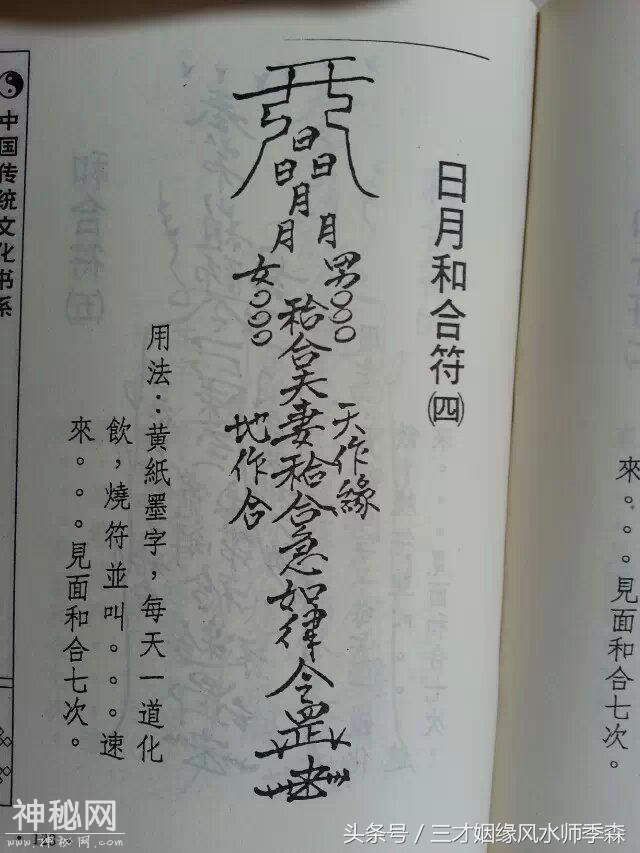 來。。。見面和合七次。
日月和合符㈣
日
日日
月
月月
男○○○
女○○○
秴合夫妻秴合急如律令罡
天作緣
地作合
用法：黄紙墨字，每天一道化
飲，燒符並叫。。。速
來。。。見面和合七次。
中国传统文化书系
神秘网
www.shenmiw.com
头条号／三才姻缘风水师季森